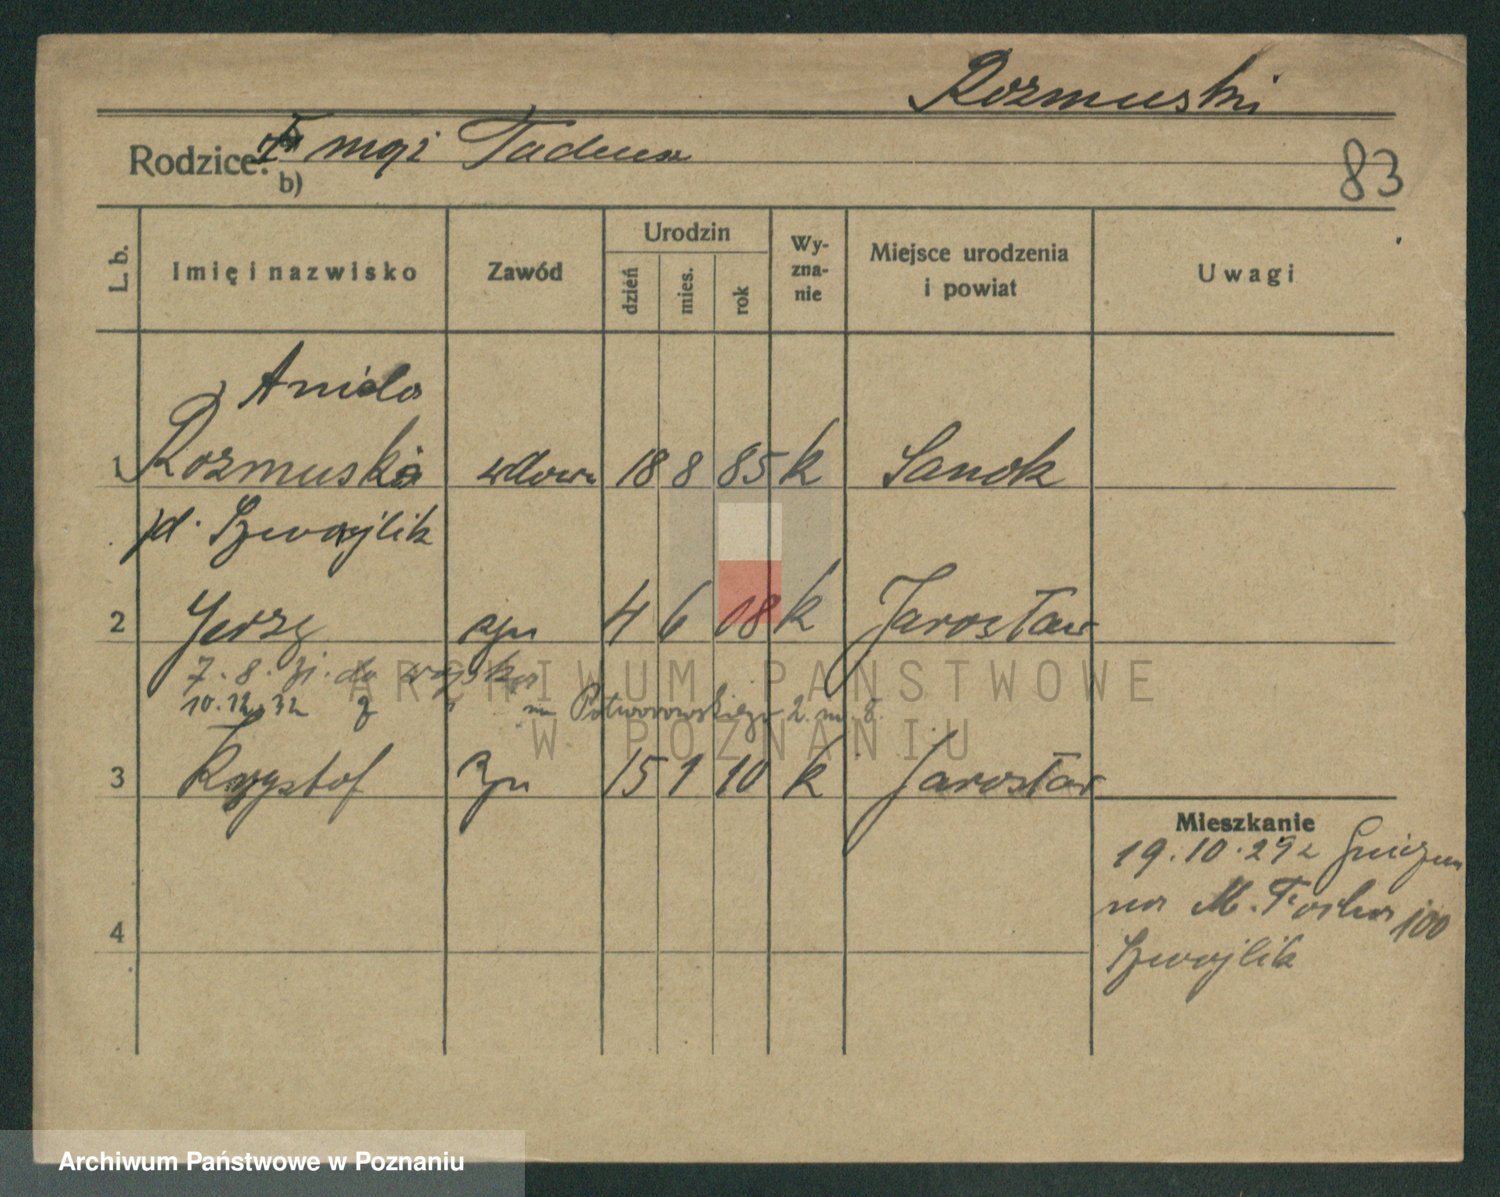 Rozmuski
Rodzice: I mąż Tadeusz
b)
83
L. b.
Imię i nazwisko
Zawód
Urodzin
dzień
mies.
rok
Wy-
zna-
nie
Miejsce urodzenia
i powiat
Uwagi
Aniela
1 Rozmuska wdowa 18 8 85 k Sanok
d. Szwajlik
2 Jerzy syn 4 6 08 k Jarosław
7. 8. 31. do wojska
10.12.32 z " na Potworowskiego 2. m. 8.
3 Krzysztof syn 15 1 10 k Jarosław
Mieszkanie
19.10.29 z
na M. Focha 100
Szwajlik
4
ARCHIWUM PAŃSTWOWE
W POZNANIU
Archiwum Państwowe w Poznaniu